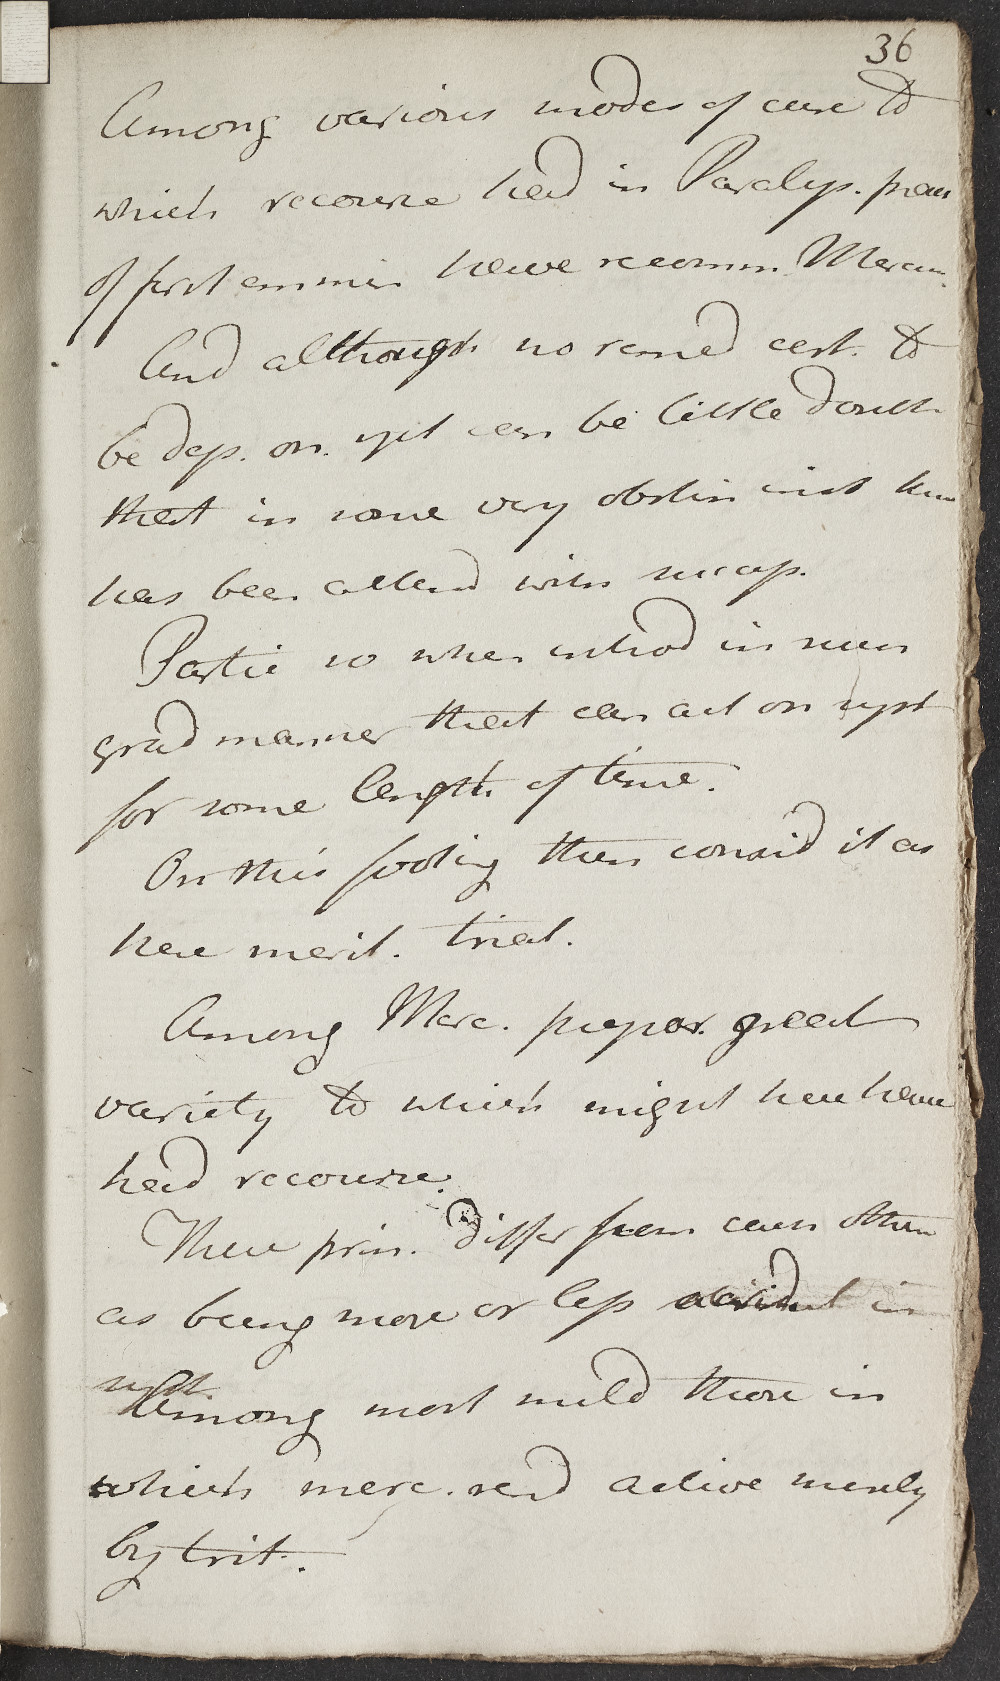 36
Among various modes of cure to
which recourse had in Paralys. prac
of first emmin have recomm. Mercu.
And although no remed cert. to
be dep. on. yet can be little doubt
that in some very obstin inst
has been attend with success.
Partic so when introd in such
grad manner that can act on syst
for some length of time.
On this footing then consid it as
here merit. trial.
Among Merc. prepar. great
variety to which might here have
had recourse.
These prin. differ from each other
as being more or less acrid in
Among most mild those in
which merc. rend active merely
by trit.